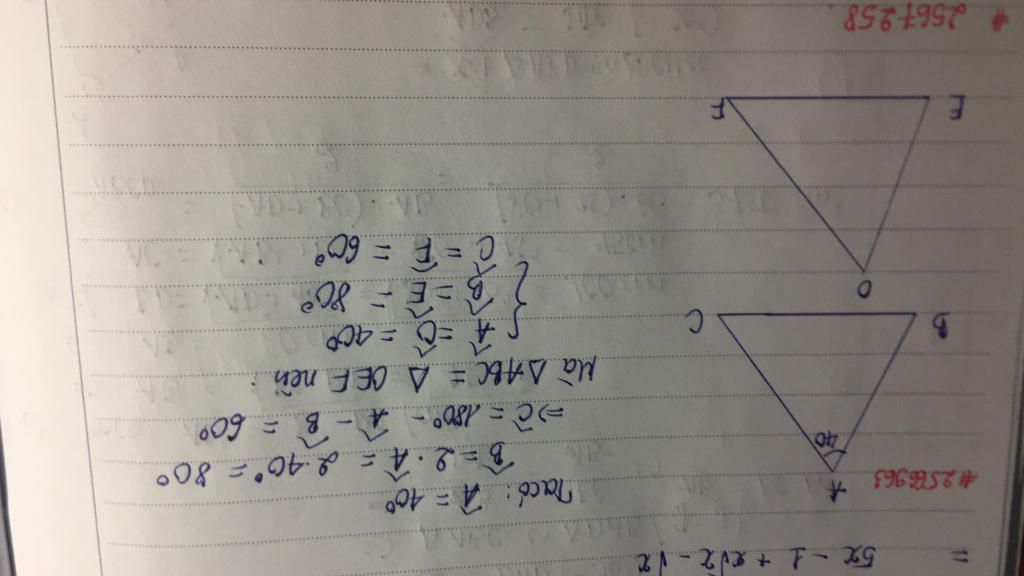 = 5x - 1 + x√x - √x
#2566963
A
40
B
C
Ta có: Â = 40°
B̂ = 2 . Â = 2.40° = 80°
⇒ Ĉ = 180° - Â - B̂ = 60°
Mà Δ ABC = Δ OEF nên :
{ Â = Ô = 40°
B̂ = Ê = 80°
Ĉ = F̂ = 60°
O
E
F
#2567258